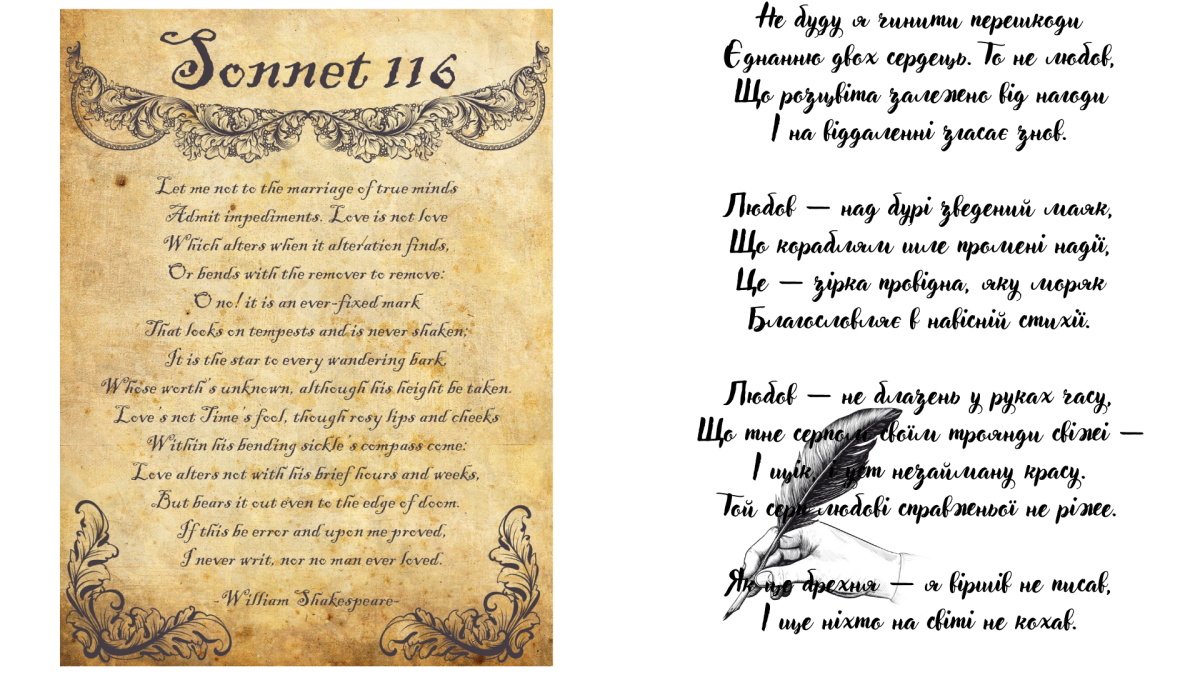 Sonnet 116
Let me not to the marriage of true minds
Admit impediments. Love is not love
Which alters when it alteration finds,
Or bends with the remover to remove:
O no! it is an ever-fixed mark
That looks on tempests and is never shaken;
It is the star to every wandering bark,
Whose worth's unknown, although his height be taken.
Love's not Time's fool, though rosy lips and cheeks
Within his bending sickle's compass come:
Love alters not with his brief hours and weeks,
But bears it out even to the edge of doom.
If this be error and upon me proved,
I never writ, nor no man ever loved.
-William Shakespeare-
Не буду я чинити перешкоди
Єднанню двох сердець. То не любов,
Що розцвіта залежно від нагоди
І на віддаленні згасає знов.
Любов — над бурі зведений маяк,
Що кораблям шле промені надії,
Це — зірка провідна, яку моряк
Благословляє в навісній стихії.
Любов — не блазень у руках часу,
Що тне серпом своїм троянди свіжі —
І щік, і уст незайману красу.
Той серп любові справжньої не ріже.
Як це брехня — я віршів не писав,
І ще ніхто на світі не кохав.